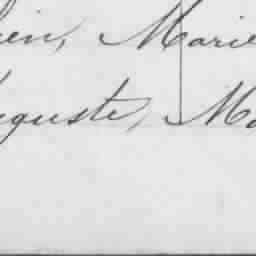 ien, Marie
uguste, Ma